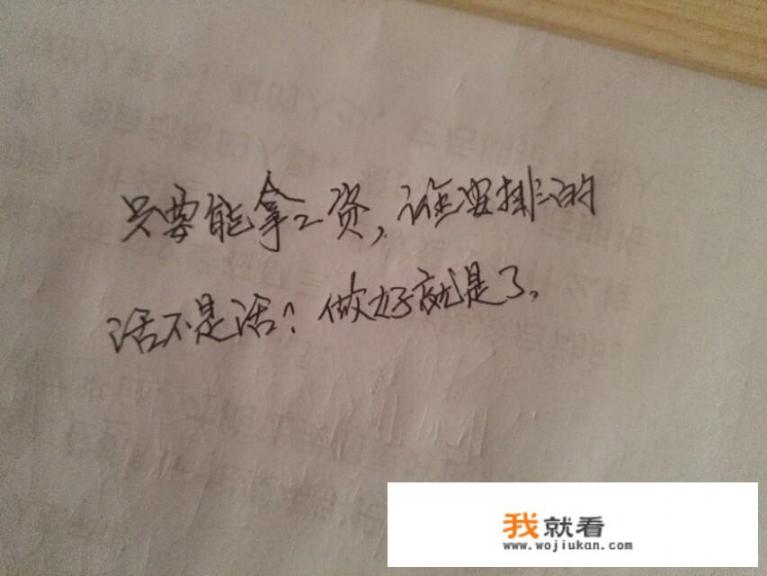 只要能拿工资,谁安排的
活不是活?做好就是了。
我就看
www.wojiukan.com